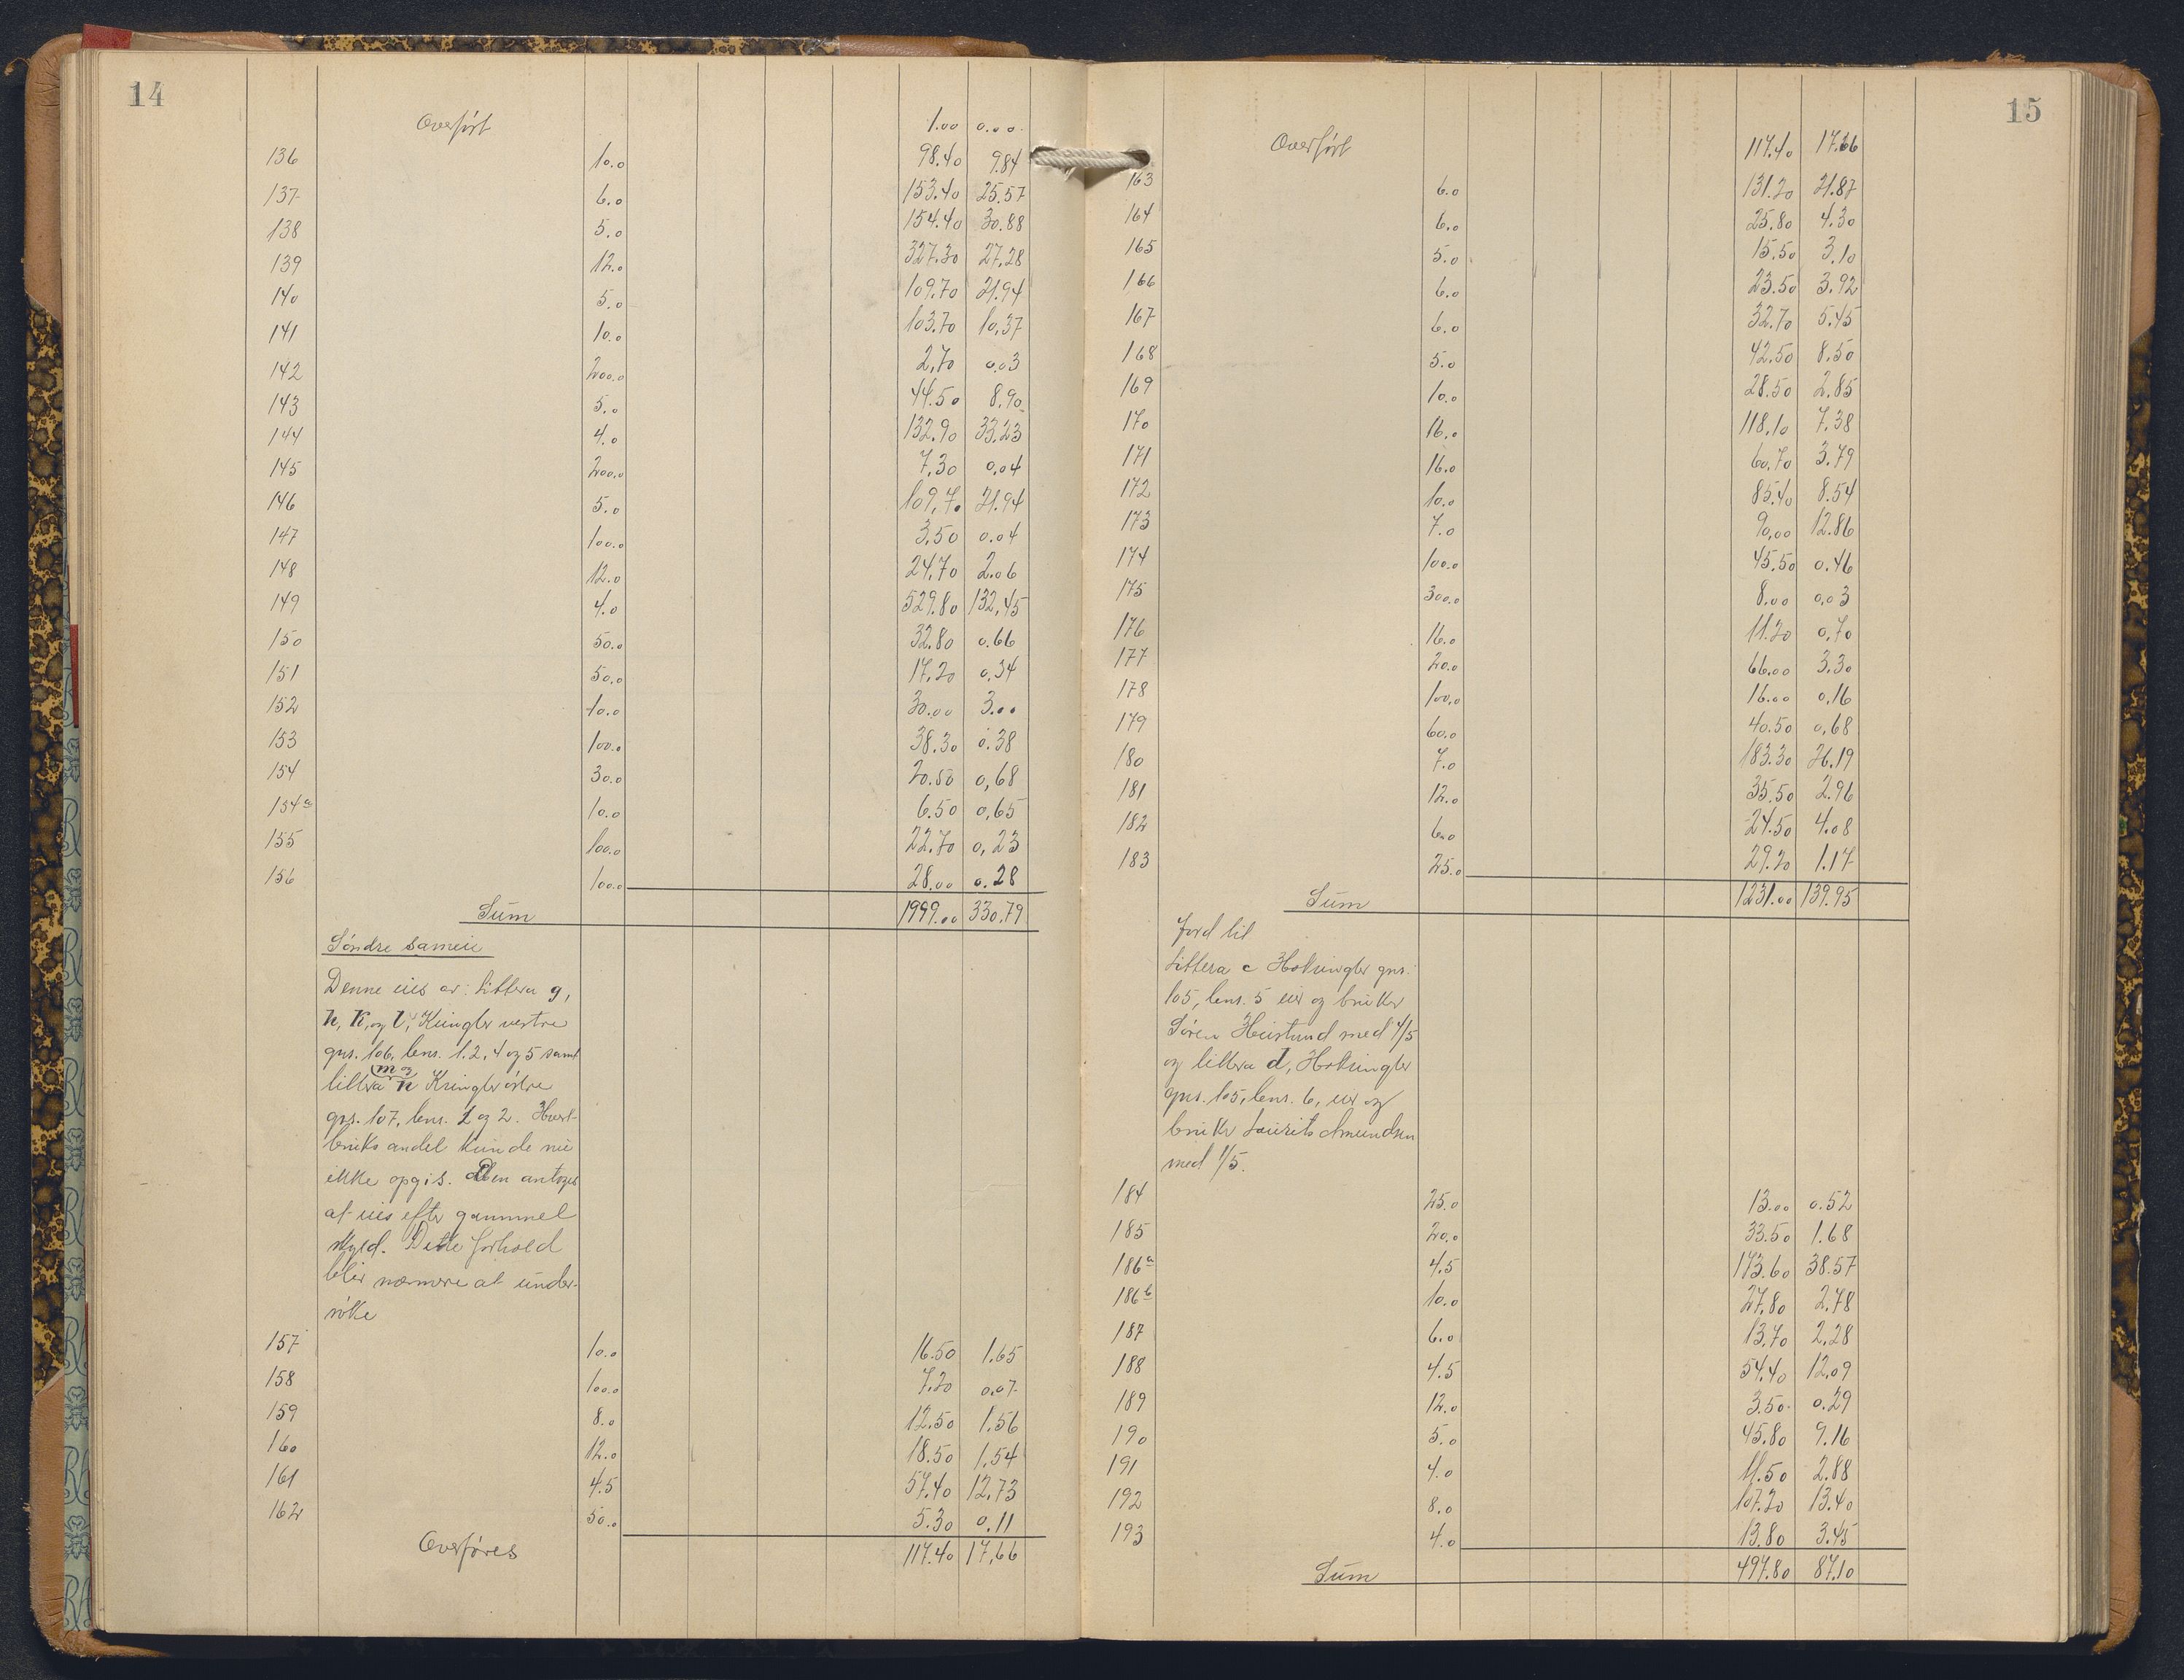 14
Overført 1.00 0.00
136 10.0 98.40 9.84
137 6.0 153.40 25.57
138 5.0 154.40 30.88
139 12.0 327.30 27.28
140 5.0 109.70 21.94
141 10.0 103.70 10.37
142 200.0 2.70 0.03
143 5.0 44.50 8.90
144 4.0 132.90 33.23
145 200.0 7.30 0.04
146 5.0 109.70 21.94
147 100.0 3.50 0.04
148 12.0 24.70 2.06
149 4.0 529.80 132.45
150 50.0 32.80 0.66
151 50.0 17.20 0.34
152 10.0 30.00 3.00
153 100.0 38.30 0.38
154 30.0 20.50 0.68
154a 10.0 6.50 0.65
155 100.0 22.70 0.23
156 100.0 28.00 0.28
Sum 1999.00 330.79
Søndre sameie
Denne eies av: Littera g,
h, k, og l, Kringler vestre
gnr. 106, bnr. 1, 2, 4 og 5 samt
littra m og n Kringler østre
gnr. 107, bnr. 1 og 2. Hvert
bruks andel kunde nu
ikke opgis. Den antages
at eies efter gammel
skyld. Dette forhold
blir nærmere at under-
søke
157 10.0 16.50 1.65
158 100.0 7.20 0.07
159 8.0 12.50 1.56
160 12.0 18.50 1.54
161 4.5 57.40 12.73
162 50.0 5.30 0.11
Overføres 117.40 17.66
15
Overført 117.40 17.66
163 6.0 131.20 21.87
164 6.0 25.80 4.30
165 5.0 15.50 3.10
166 6.0 23.50 3.92
167 6.0 32.70 5.45
168 5.0 42.50 8.50
169 10.0 28.50 2.85
170 16.0 118.10 7.38
171 16.0 60.70 3.79
172 10.0 85.40 8.54
173 7.0 90.00 12.86
174 100.0 45.50 0.46
175 300.0 8.00 0.03
176 16.0 11.20 0.70
177 20.0 66.00 3.30
178 100.0 16.00 0.16
179 60.0 40.50 0.68
180 7.0 183.30 26.19
181 12.0 35.50 2.96
182 6.0 24.50 4.08
183 25.0 29.20 1.17
Sum 1231.00 139.95
Jord til
Littera c Hokringler gnr.
105, bnr. 5 eier og bruker
Søren Heistund med 4/5
og littera d, Hokringler
gnr. 105, bnr. 6, eier og
bruker Laurits Amundsen
med 1/5.
184 25.0 13.00 0.52
185 20.0 33.50 1.68
186a 4.5 173.60 38.57
186b 10.0 27.80 2.78
187 6.0 13.70 2.28
188 4.5 54.40 12.09
189 12.0 3.50 0.29
190 5.0 45.80 9.16
191 4.0 11.50 2.88
192 8.0 107.20 13.40
193 4.0 13.80 3.45
Sum 497.80 87.10